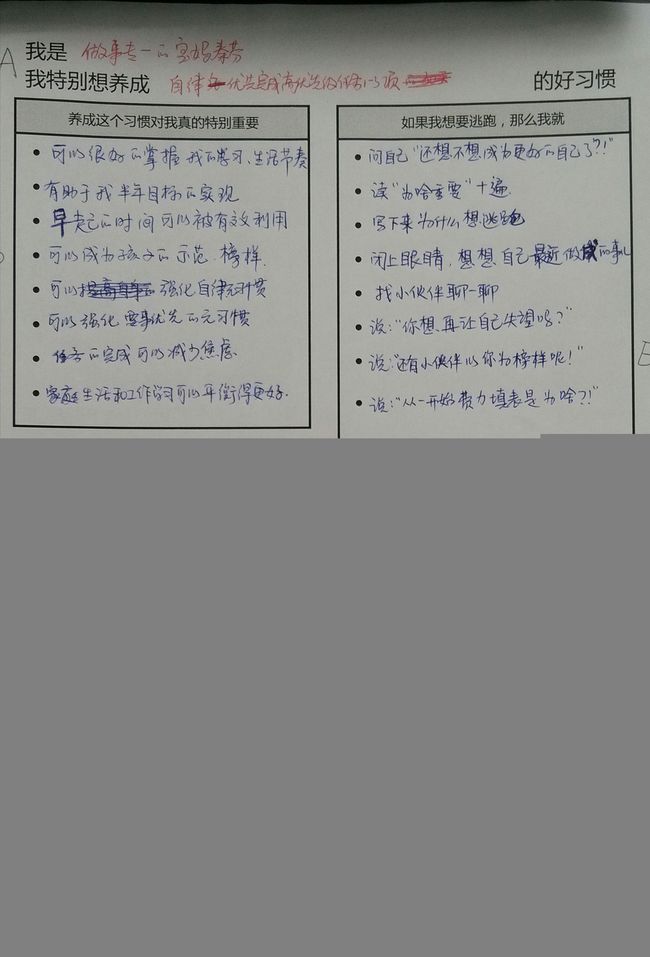 A
我是 做事专一的宝妈秦芬
我特别想养成 自律优先完成高优先级任务1-3项 的好习惯
养成这个习惯对我真的特别重要
• 可以很好的掌握我的学习、生活节奏
• 有助于我半年目标的实现
• 早起的时间可以被有效利用
• 可以成为孩子的示范、榜样.
• 可以强化自律元习惯
• 可以强化要事优先的元习惯
• 任务的完成可以减少焦虑.
• 家庭生活和工作学习可以平衡得更好.
如果我想要逃跑，那么我就
• 问自己“还想不想成为更好的自己了?!”
• 读“为啥重要”十遍
• 写下来为什么想逃跑
• 闭上眼睛，想想自己最近做成的事儿
• 找小伙伴聊一聊
• 说:“你想再让自己失望吗?”
• 说:“还有小伙伴以你为榜样呢!”
• 说:“从一开始费力填表是为啥?!”